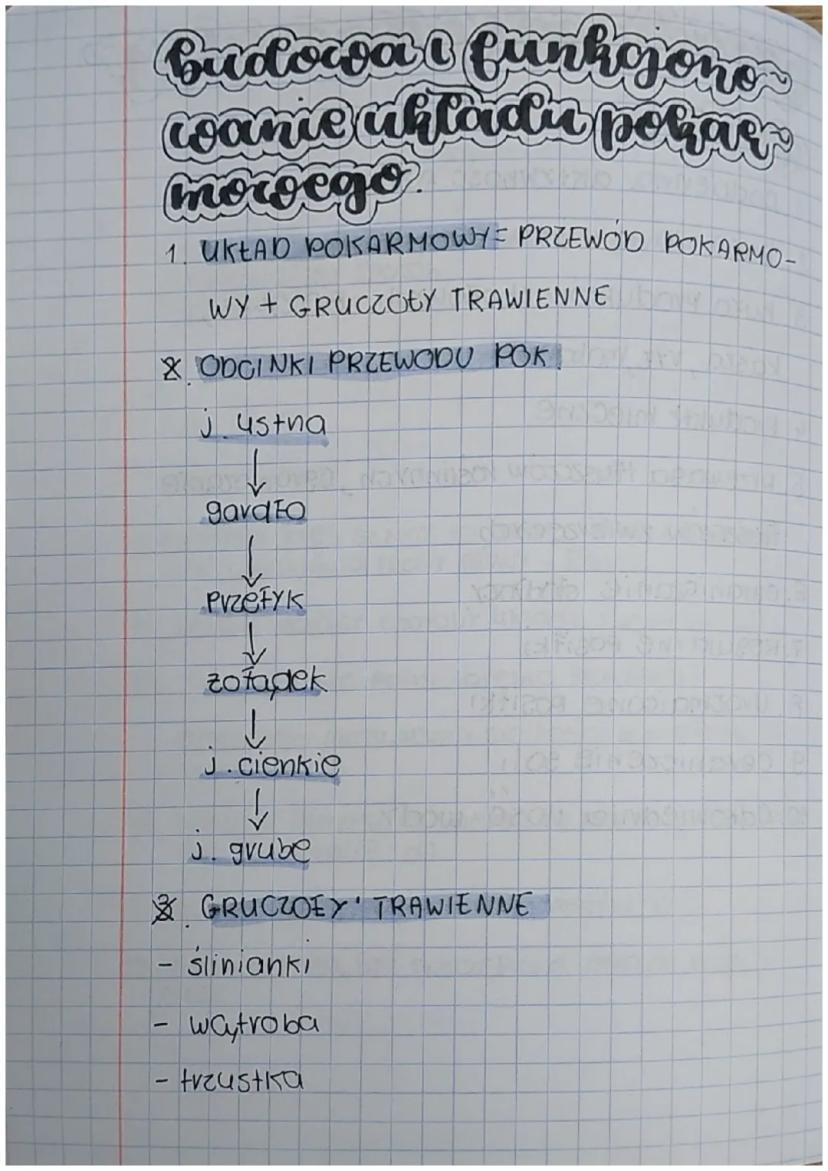 Budowa i funkcjono~
wanie układu pokar~
mowego.
1. UKŁAD POKARMOWY = PRZEWÓD POKARMO-
WY + GRUCZOŁY TRAWIENNE
2. ODCINKI PRZEWODU POK.
j. ustna
↓
gardło
↓
przełyk
↓
żołądek
↓
j. cienkie
↓
j. grube
3. GRUCZOŁY TRAWIENNE
- ślinianki
- wątroba
- trzustka